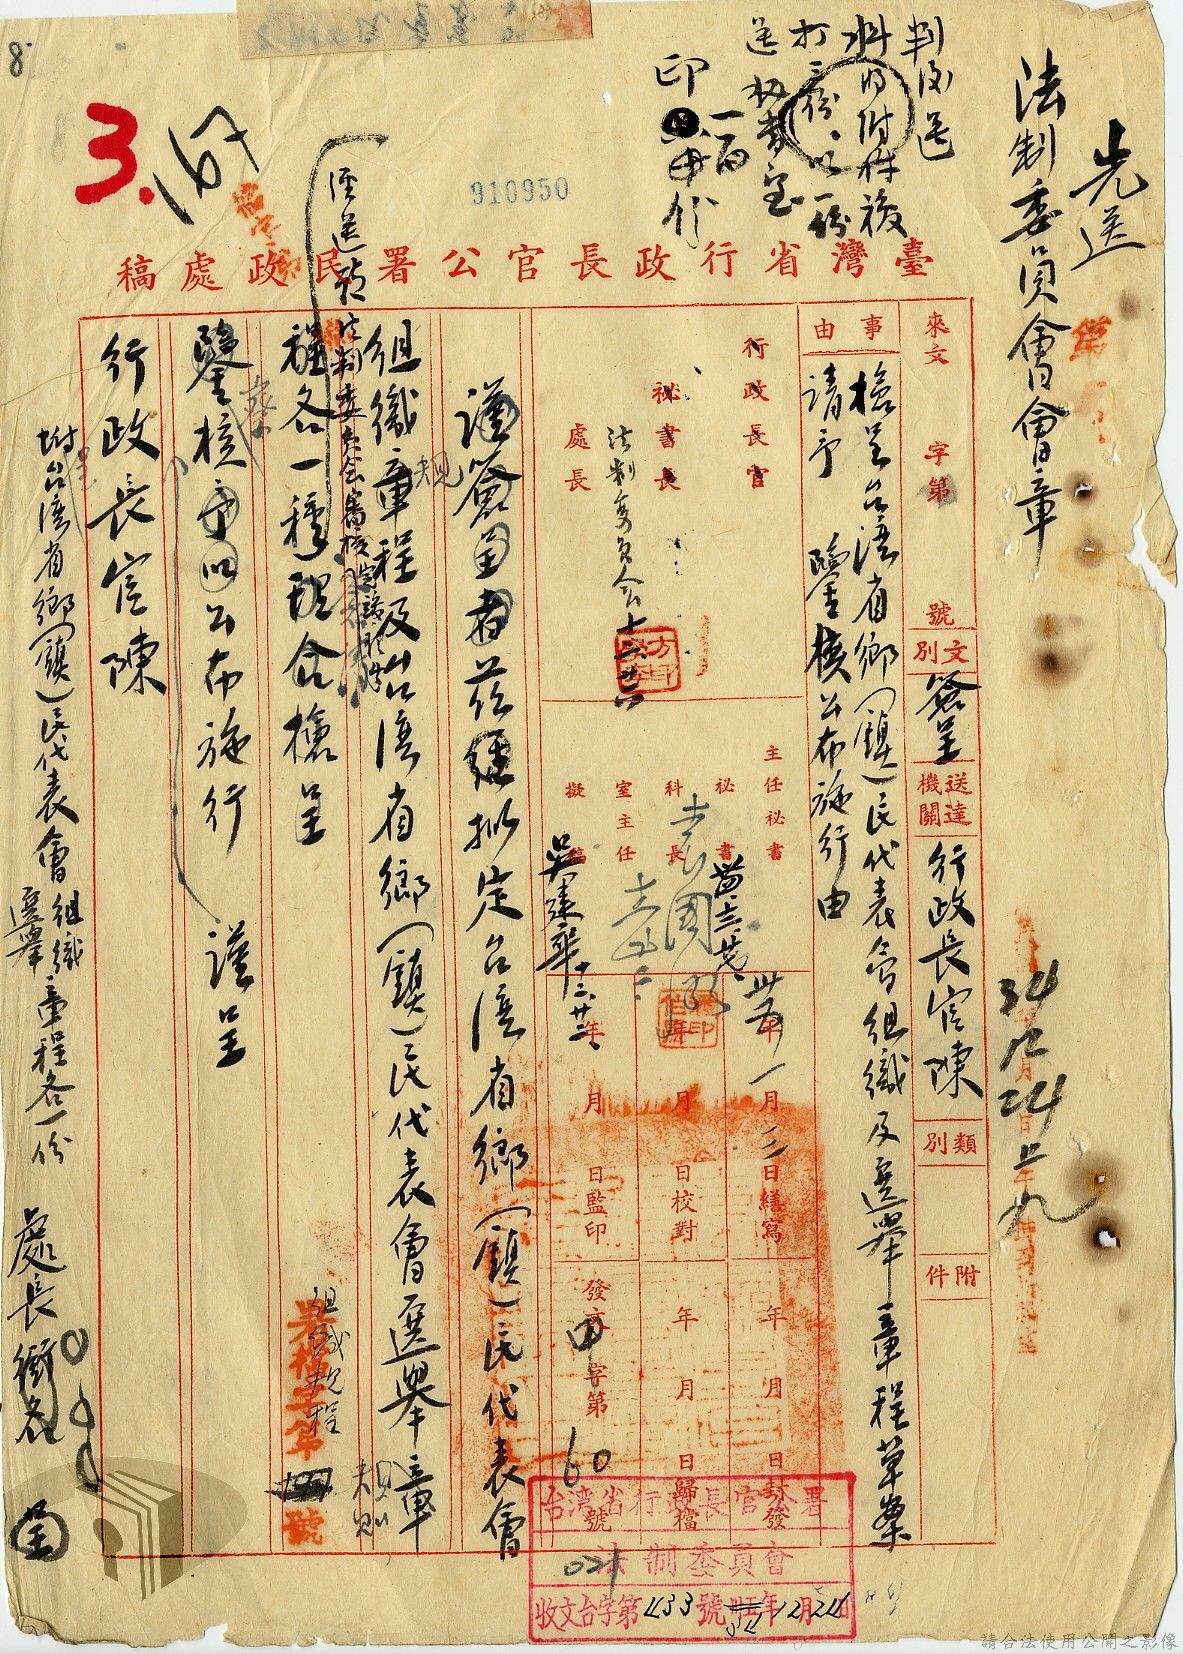 先送
法制委員會會章
判後送
打三份
送秘書室
印
8
3.
167
910950
逕送請
臺灣省行政長官公署民政處稿
來文 字第 號
文別 簽呈
送達機關 行政長官陳
類別
附件
事由
檢呈台灣省鄉(鎮)民代表會組織及選舉章程草案
請予 鑒核公布施行由
行政長官
秘書長
處長
法制委員會 十二 廿六
主任秘書
秘書
科長
室主任
擬稿
吳建華 十二、廿二、
卅五年一月三日繕寫
年 月 日校對
年 月 日監印
年 月 日封發
年 月 日歸檔
發文 甲 字第 60 號
謹簽呈者茲經擬定台灣省鄉(鎮)民代表會
組織章程及台灣省鄉(鎮)民代表會選舉章
規
規則
程各一種理合檢呈
法制委員會審核
組織規程
鑒核予以公布施行 謹呈
行政長官陳
附呈台灣省鄉(鎮)民代表會組織選舉章程各一份
處長銜名 呈
34 12 24 上 九
台灣省行政長官公署
法制委員會
收文台字第433號 34年12月24日
請合法使用公開之影像